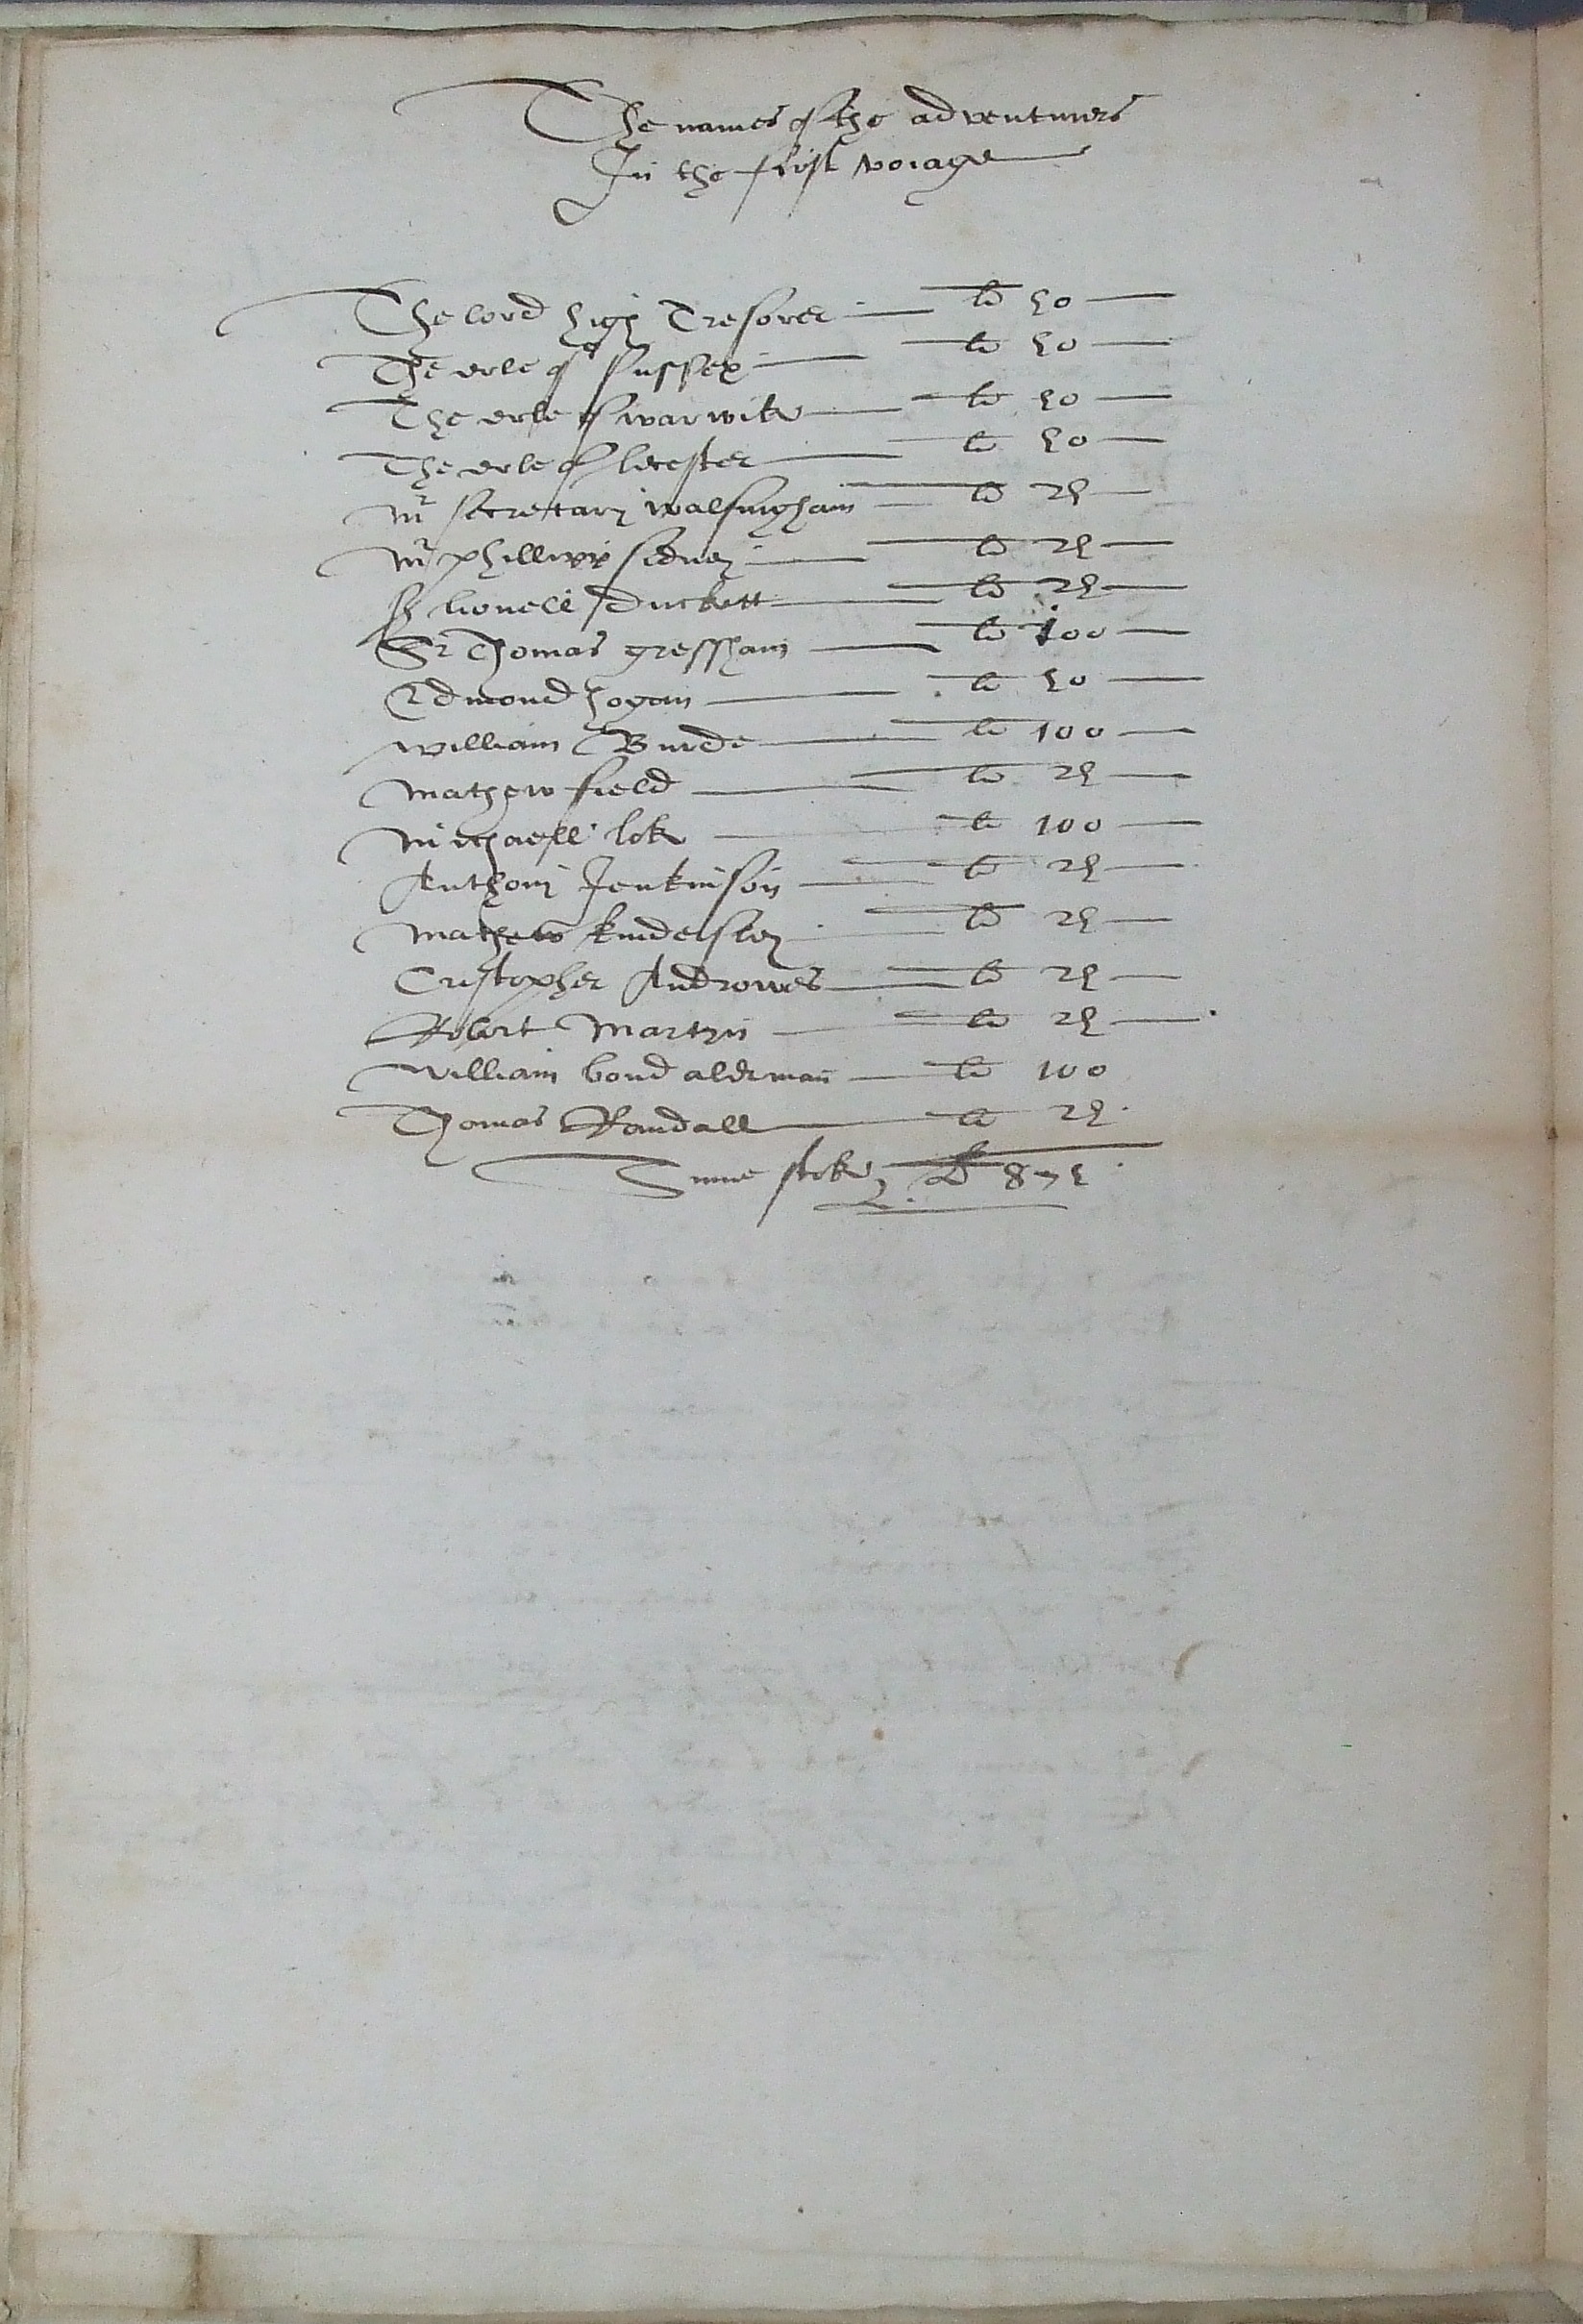 The names of the adventurers
In the first voiage
The lord high Tresorer li 50
The erle of Sussex li 50
The erle of warwik li 50
The erle of lecester li 50
Mr Secretary walsingham li 25
Mr phillipp sidney li 25
Sr lionell duckett li 25
Sr Thomas gressham li 100
Edmond hogan li 50
william Burde li 100
Mathew field li 25
Michaell lok li 100
Anthony Jenkinson li 25
Mathew kindersley li 25
Cristopher Androwes li 25
Robert Martyn li 25
william bond alderman li 100
Thomas Randall li 25
Sume stok li 875